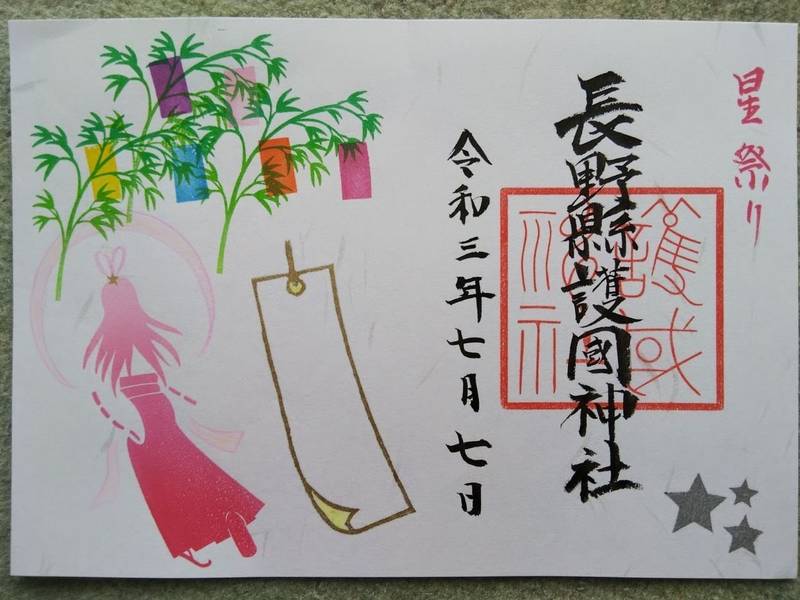 星祭り
長野縣護國神社
令和三年七月七日